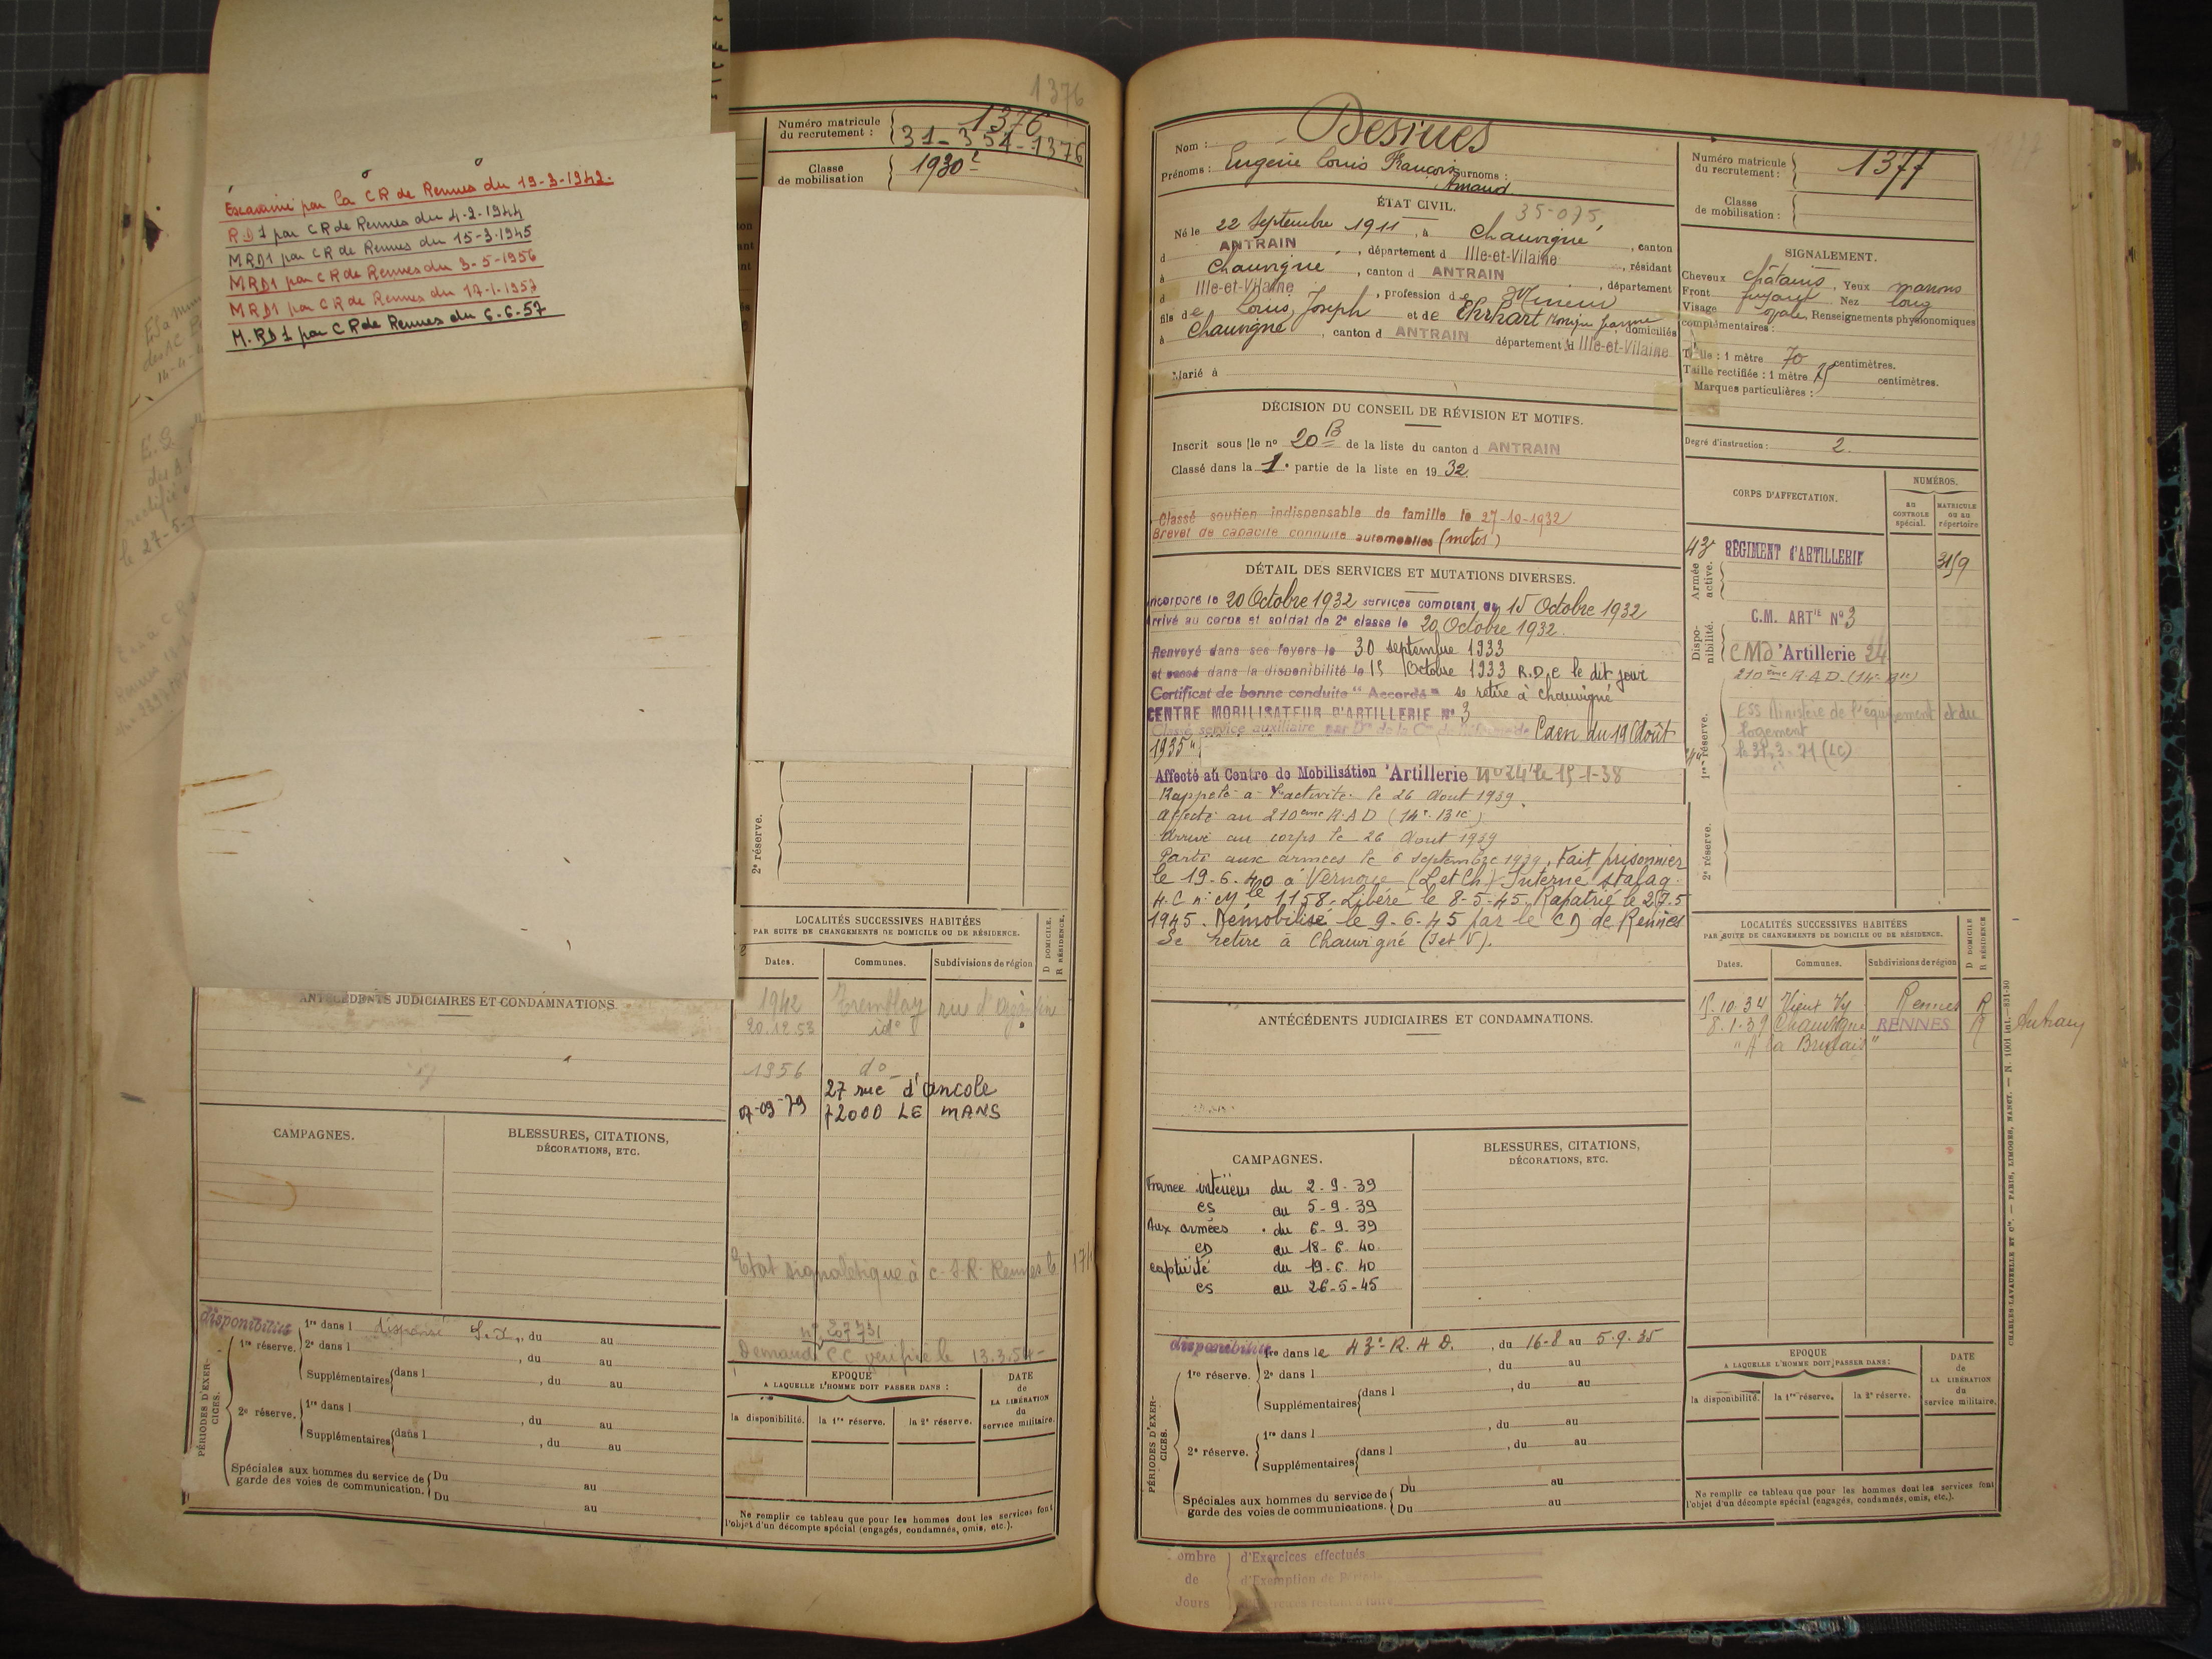 1376
Numéro matricule du recrutement : 1376
31-351-1376
Classe de mobilisation 1930
Escavamé par la CR de Rennes du 19-3-1942.
RD1 par CR de Rennes du 4-2-1944
MRD1 par CR de Rennes du 15-3-1945
MRD1 par CR de Rennes du 3-5-1956
MRD1 par CR de Rennes du 17-1-1957
M.RD1 par CR de Rennes du 6.6.57
2e réserve.
LOCALITÉS SUCCESSIVES HABITÉES
PAR SUITE DE CHANGEMENTS DE DOMICILE OU DE RÉSIDENCE.
D DOMICILE.
R RÉSIDENCE.
Dates. Communes. Subdivisions de région
1942 Tremblay rue d'
20.12.53 id°
1956 d°
27 rue d'arcole
07-09-79 72000 LE MANS
ANTÉCÉDENTS JUDICIAIRES ET CONDAMNATIONS
CAMPAGNES.
BLESSURES, CITATIONS,
DÉCORATIONS, ETC.
Etat signalétique à C.S.R. Rennes le 17
n° 207731
Demande CC vérifié le 13.3.54-
disponibilité
PÉRIODES D'EXERCICES.
1re réserve. 1re dans l dispensé S.X., du au
2e dans l , du au
Supplémentaires dans l , du au
2e réserve. 1re dans l , du au
Supplémentaires dans l , du au
Spéciales aux hommes du service de garde des voies de communication. Du au
Du au
EPOQUE
A LAQUELLE L'HOMME DOIT PASSER DANS :
la disponibilité. la 1re réserve. la 2e réserve.
DATE de LA LIBÉRATION du service militaire.
Ne remplir ce tableau que pour les hommes dont les services font
l'objet d'un décompte spécial (engagés, condamnés, omis, etc.).
Nom : Desrues
Prénoms : Eugène Louis François Surnoms :
Amand
ÉTAT CIVIL. 35-075
Né le 22 Septembre 1911, à Chauvigné, canton
d ANTRAIN, département d Ille-et-Vilaine, résidant
à Chauvigné, canton d ANTRAIN, département
d Ille-et-Vilaine, profession de Mineur
fils de Louis, Joseph et de Ehrhart Monique Jeanne domiciliés
à Chauvigné, canton d ANTRAIN département d Ille-et-Vilaine
Marié à
Numéro matricule du recrutement : 1377
Classe de mobilisation :
SIGNALEMENT.
Cheveux châtains, Yeux marrons
Front fuyant Nez long
Visage ovale, Renseignements physionomiques
complémentaires :
Taille : 1 mètre 70 centimètres.
Taille rectifiée : 1 mètre 75 centimètres.
Marques particulières :
Degré d'instruction : 2.
DÉCISION DU CONSEIL DE RÉVISION ET MOTIFS.
Inscrit sous le no 20 B de la liste du canton d ANTRAIN
Classé dans la 1e partie de la liste en 1932.
Classé soutien indispensable de famille le 27-10-1932
Brevet de capacité conduite automobiles (motos)
DÉTAIL DES SERVICES ET MUTATIONS DIVERSES.
Incorporé le 20 Octobre 1932 services comptant du 15 Octobre 1932
Arrivé au corps et soldat de 2e classe le 20 Octobre 1932.
Renvoyé dans ses foyers le 30 septembre 1933
et passé dans la disponibilité le 15 Octobre 1933 R.D.C le dit jour
Certificat de bonne conduite "Accordé" se retire à Chauvigné
CENTRE MOBILISATEUR D'ARTILLERIE No 3
Classé service auxiliaire par Caen du 19 Août
1935
Affecté au Centre de Mobilisation Artillerie No 24 le 15-1-38
Rappelé à l'activité le 26 Aout 1939.
Affecté au 210ème R.A.D (14e Bie)
Arrivé au corps le 26 Aout 1939
Parti aux armées le 6 septembre 1939. Fait prisonnier
le 19-6-40 à Vernoue (L et Ch) Interné stalag.
4.C n: Mle 1158. Libéré le 8-5-45. Rapatrié le 27.5
1945. Démobilisé le 9-6-45 par le CD de Rennes
Se retire à Chauvigné (I et V).
CORPS D'AFFECTATION.
NUMÉROS.
au CONTROLE spécial.
MATRICULE ou au répertoire
Armée active. 43 RÉGIMENT d'ARTILLERIE 3159
Disponibilité. C.M. ARTIE No 3
CM d'Artillerie 24
1re réserve. 210ème R.A.D. (14e Bie)
ESS Ministère de l'équipement et du
Logement
le 31-3-71 (LC)
2e réserve.
LOCALITÉS SUCCESSIVES HABITÉES
PAR SUITE DE CHANGEMENTS DE DOMICILE OU DE RÉSIDENCE.
D DOMICILE
R RÉSIDENCE
Dates. Communes. Subdivisions de région
15.10.34 Vieux Vy Rennes R
8.1.39 Chauvigné RENNES R Antrain
ANTÉCÉDENTS JUDICIAIRES ET CONDAMNATIONS.
CAMPAGNES.
BLESSURES, CITATIONS,
DÉCORATIONS, ETC.
France intérieur du 2-9-39
CS au 5-9-39
Aux armées du 6-9-39
CD au 18-6-40
captivité du 19-6-40
CS au 26-5-45
disponibilité
PÉRIODES D'EXERCICES.
1re réserve. 1re dans le 43e R.A.D., du 16-8 au 5.9.35
2e dans l , du au
Supplémentaires dans l , du au
2e réserve. 1re dans l , du au
Supplémentaires dans l , du au
Spéciales aux hommes du service de garde des voies de communications. Du au
Du au
EPOQUE
A LAQUELLE L'HOMME DOIT PASSER DANS :
la disponibilité. la 1re réserve. la 2e réserve.
DATE de LA LIBÉRATION du service militaire.
Ne remplir ce tableau que pour les hommes dont les services font
l'objet d'un décompte spécial (engagés, condamnés, omis, etc.).
CHARLES-LAVAUZELLE ET Cie. — PARIS, LIMOGES, NANCY. — N. 1001 int.—831-30
ombre d'Exercices effectués
de d'Exemption de Période
Jours